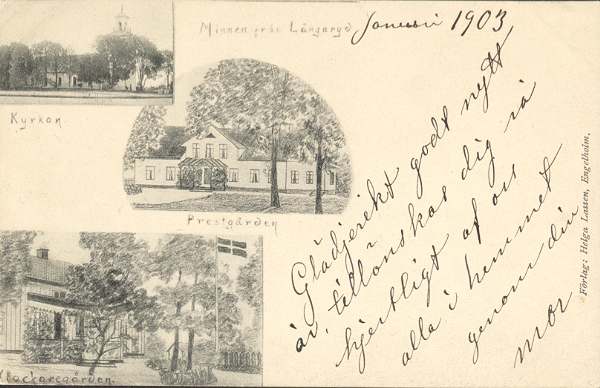 Minnen från Långaryd
Januari 1903
Kyrkan
Prestgården
Klockaregården.
Glädjerikt godt nytt
år, tillönskas dig så
hjertligt af oss
alla i hemmet
genom din
mor
Förlag: Helga Lassen, Engelholm.